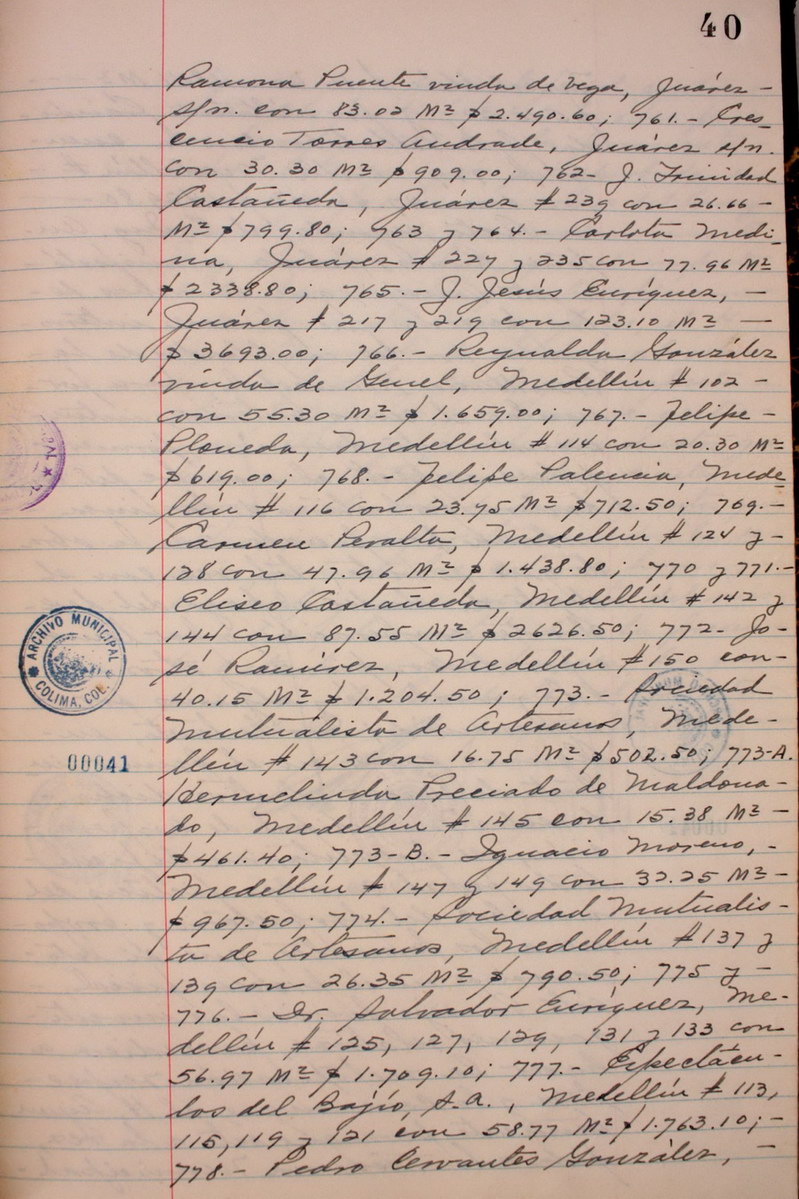 40
Ramona Puente viuda de Vega, Juárez -
s/n. con 83.02 M² $2.490.60; 761.- Cres-
cencio Torres Andrade, Juárez s/n.
con 30.30 M² $909.00; 762- J. Trinidad
Castañeda, Juárez # 239 con 26.66 -
M² $799.80; 763 y 764.- Carlota Medi-
na, Juárez # 227 y 235 con 77.96 M²
$2338.80; 765.- J. Jesús Enríquez, -
Juárez # 217 y 219 con 123.10 M² -
$3693.00; 766.- Reynalda González
viuda de Genel, Medellín # 102 -
con 55.30 M² $1.659.00; 767.- Felipe -
Ploneda, Medellín # 114 con 20.30 M²
$619.00; 768.- Felipe Palencia, Mede-
llín # 116 con 23.75 M² $712.50; 769.-
Carmen Peralta, Medellín # 124 y -
128 con 47.96 M² $1.438.80; 770 y 771.-
Eliseo Castañeda, Medellín # 142 y
144 con 87.55 M² $2626.50; 772- Jo-
sé Ramírez, Medellín # 150 con-
40.15 M² $1.204.50; 773.- Sociedad
Mutualista de Artesanos, Mede-
llín # 143 con 16.75 M² $502.50; 773-A.
Hermelinda Preciado de Maldona-
do, Medellín # 145 con 15.38 M² -
$461.40; 773-B.- Ignacio Moreno, -
Medellín # 147 y 149 con 32.25 M² -
$967.50; 774.- Sociedad Mutualis-
ta de Artesanos, Medellín # 137 y
139 con 26.35 M² $790.50; 775 y -
776.- Dr. Salvador Enríquez, Me-
dellín # 125, 127, 129, 131 y 133 con
56.97 M² $1.709.10; 777.- Espectácu-
los del Bajío, S.A., Medellín # 113,
115, 119 y 121 con 58.77 M² $1.763.10; -
778.- Pedro Cervantes González, -
ARCHIVO MUNICIPAL
COLIMA, COL.
00041